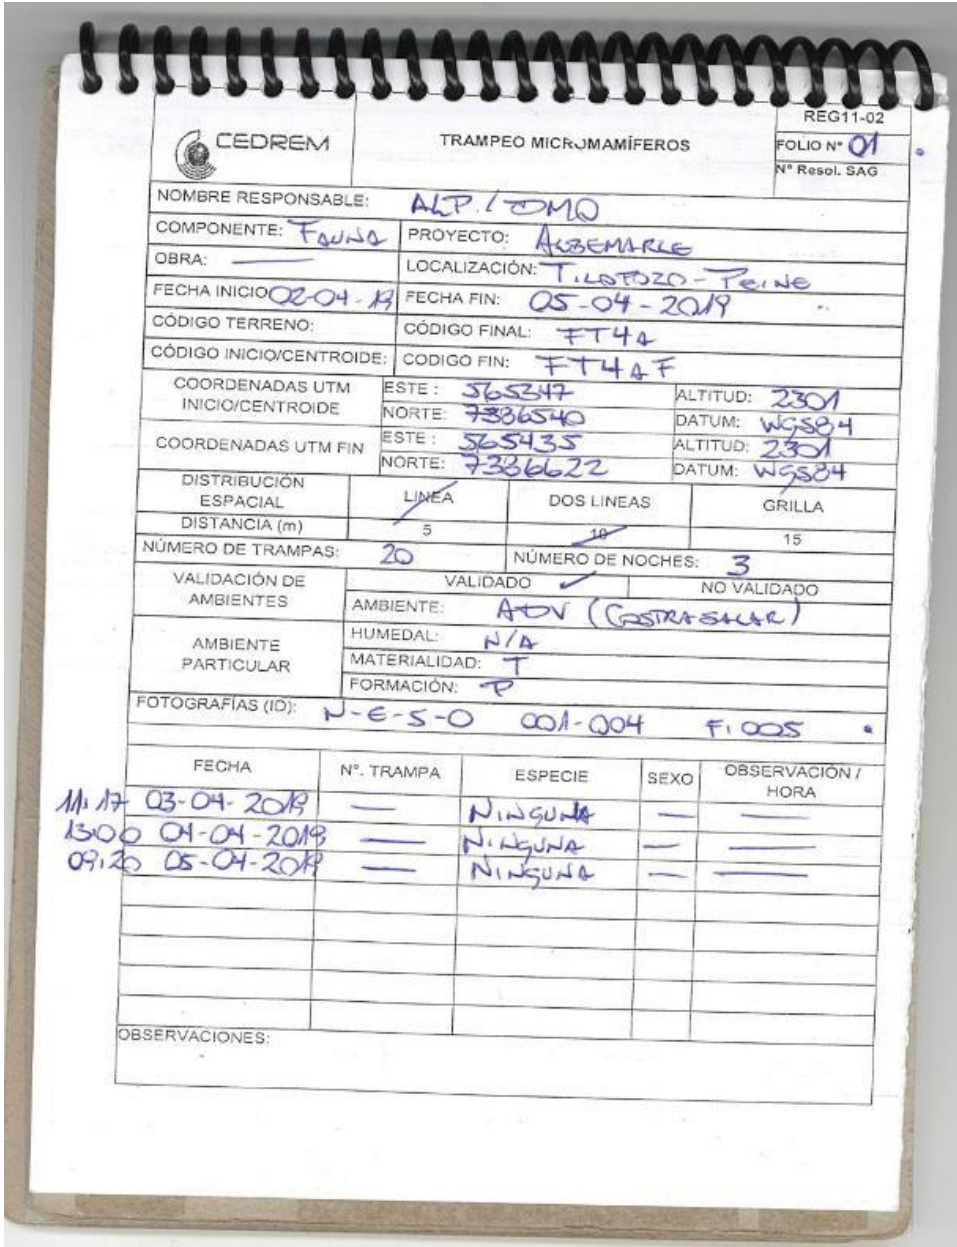 REG11-02
CEDREM
TRAMPEO MICROMAMÍFEROS
FOLIO N° 01
N° Resol. SAG
NOMBRE RESPONSABLE: ALP. / DMQ
COMPONENTE: FAUNA PROYECTO: ALBEMARLE
OBRA: — LOCALIZACIÓN: TILOPOZO - PEINE
FECHA INICIO 02-04-19 FECHA FIN: 05-04-2019
CÓDIGO TERRENO: CÓDIGO FINAL: FT4A
CÓDIGO INICIO/CENTROIDE: CODIGO FIN: FT4AF
COORDENADAS UTM INICIO/CENTROIDE ESTE : 565347 ALTITUD: 2301
NORTE: 7386540 DATUM: WGS84
COORDENADAS UTM FIN ESTE : 565435 ALTITUD: 2301
NORTE: 7386622 DATUM: WGS84
DISTRIBUCIÓN ESPACIAL LINEA DOS LINEAS GRILLA
DISTANCIA (m) 5 10 15
NÚMERO DE TRAMPAS: 20 NÚMERO DE NOCHES: 3
VALIDACIÓN DE AMBIENTES VALIDADO ✓ NO VALIDADO
AMBIENTE: ADV (COSTRA SALAR)
AMBIENTE PARTICULAR HUMEDAL: N/A
MATERIALIDAD: T
FORMACIÓN: P
FOTOGRAFÍAS (ID): N-E-S-O 001-004 F. 005
FECHA N°. TRAMPA ESPECIE SEXO OBSERVACIÓN / HORA
11:17 03-04-2019 — NINGUNA — —
13:00 04-04-2019 — NINGUNA — —
09:20 05-04-2019 — NINGUNA — —
OBSERVACIONES: